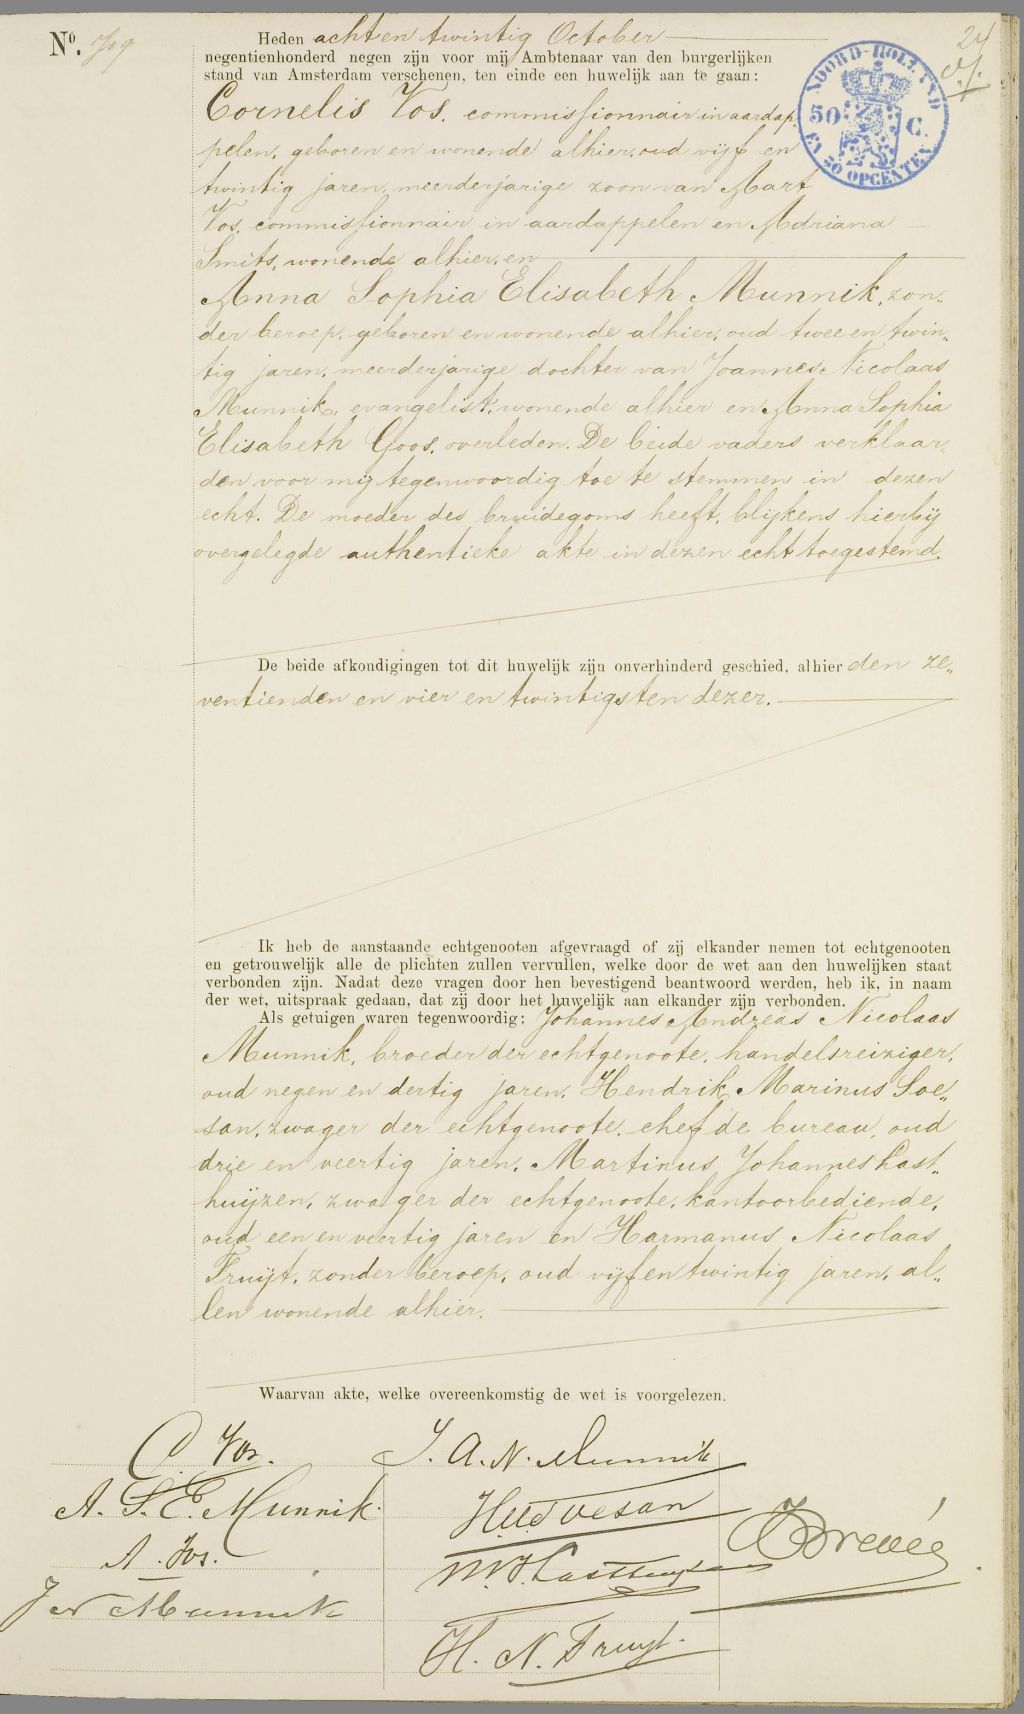 Nº. 709
24
Heden acht en twintig October
negentienhonderd negen zijn voor mij Ambtenaar van den burgerlijken
stand van Amsterdam verschenen, ten einde een huwelijk aan te gaan:
NOORD-HOLLAND
50 C.
EN 50 OPCENTEN
Cornelis Vos, commissionnair in aardap„
pelen, geboren en wonende alhier, oud vijf en
twintig jaren, meerderjarige zoon van Aart
Vos, commissionnair in aardappelen en Adriana
Smits, wonende alhier, en
Anna Sophia Elisabeth Munnik, zon„
der beroep, geboren en wonende alhier, oud twee en twin„
tig jaren, meerderjarige dochter van Joannes Nicolaas
Munnik, evangelist, wonende alhier en Anna Sophia
Elisabeth Goos, overleden. De beide vaders verklaar„
den voor mij tegenwoordig toe te stemmen in dezen
echt. De moeder des bruidegoms heeft, blijkens hierbij
overgelegde authentieke akte in dezen echt toegestemd.
De beide afkondigingen tot dit huwelijk zijn onverhinderd geschied, alhier den ze„
ventienden en vier en twintigsten dezer.
Ik heb de aanstaande echtgenooten afgevraagd of zij elkander nemen tot echtgenooten
en getrouwelijk alle de plichten zullen vervullen, welke door de wet aan den huwelijken staat
verbonden zijn. Nadat deze vragen door hen bevestigend beantwoord werden, heb ik, in naam
der wet, uitspraak gedaan, dat zij door het huwelijk aan elkander zijn verbonden.
Als getuigen waren tegenwoordig: Johannes Andreas Nicolaas
Munnik, broeder der echtgenoote, handelsreiziger,
oud negen en dertig jaren, Hendrik Marinus Soe„
san, zwager der echtgenoote, chef de bureau, oud
drie en veertig jaren, Martinus Johannes Cast„
huijzen, zwager der echtgenoote, kantoorbediende,
oud een en veertig jaren en Harmanus Nicolaas
Fruijt, zonder beroep, oud vijf en twintig jaren, al„
len wonende alhier.
Waarvan akte, welke overeenkomstig de wet is voorgelezen.
C. Vos. J. A. N. Munnik
A. S. E. Munnik. H M Soesan
A. Vos. M. J. Casthuijzen
J N Munnik
H. N. Fruijt.